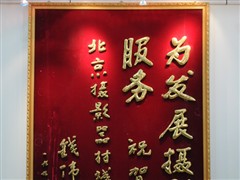 为发展摄
服务
祝贺
北京摄影器材
钱伟